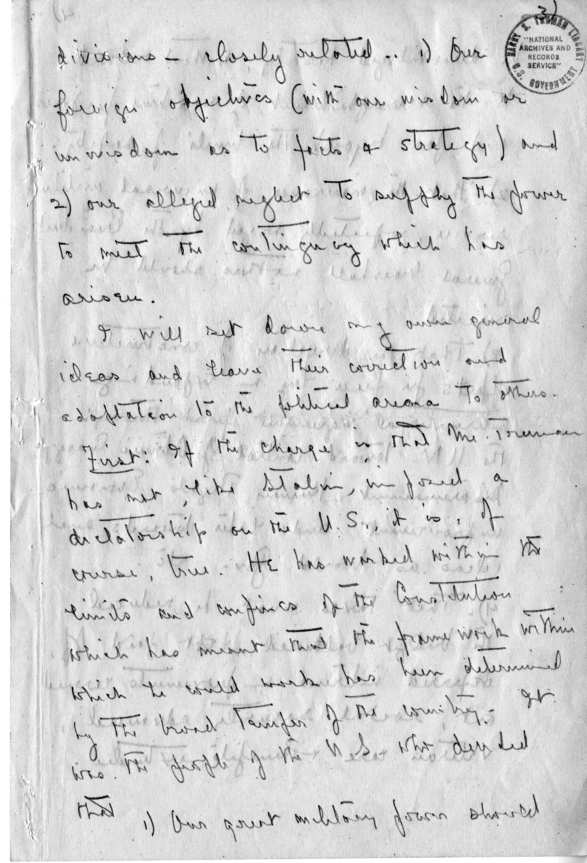 3)
HARRY S. TRUMAN LIBRARY
"NATIONAL
ARCHIVES AND
RECORDS
SERVICE"
U.S. GOVERNMENT
divisions – closely related .. 1) Our
foreign objectives (with our wisdom or
unwisdom as to facts & strategy) and
2) our alleged neglect to supply the power
to meet the contingency which has
arisen.
I will set down my own general
ideas and leave their correction and
adaptation to the political arena to others.
First. If the charge is that Mr. Truman
has not, like Stalin, imposed a
dictatorship on the U.S., it is, of
course, true. He has worked within the
limits and confines of the Constitution
which has meant that the framework within
which he could work has been determined
by the broad temper of the country. It
was the people of the U.S. who decided
that 1) Our great military power should